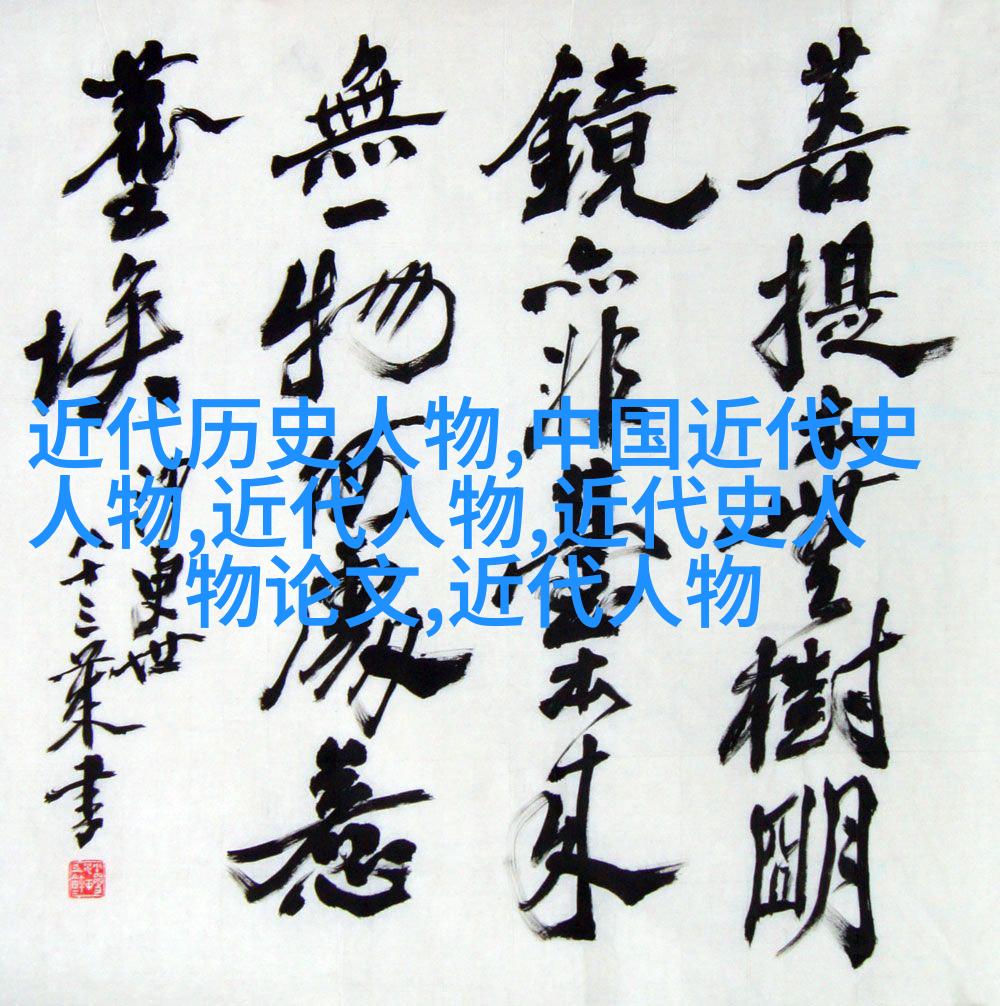 菩提本無樹明
鏡亦非臺本來
無一物何處惹
塵埃
沙更世
八十三 書
近代历史人物,中国近代史
人物,近代人物,近代史人
物论文,近代人物